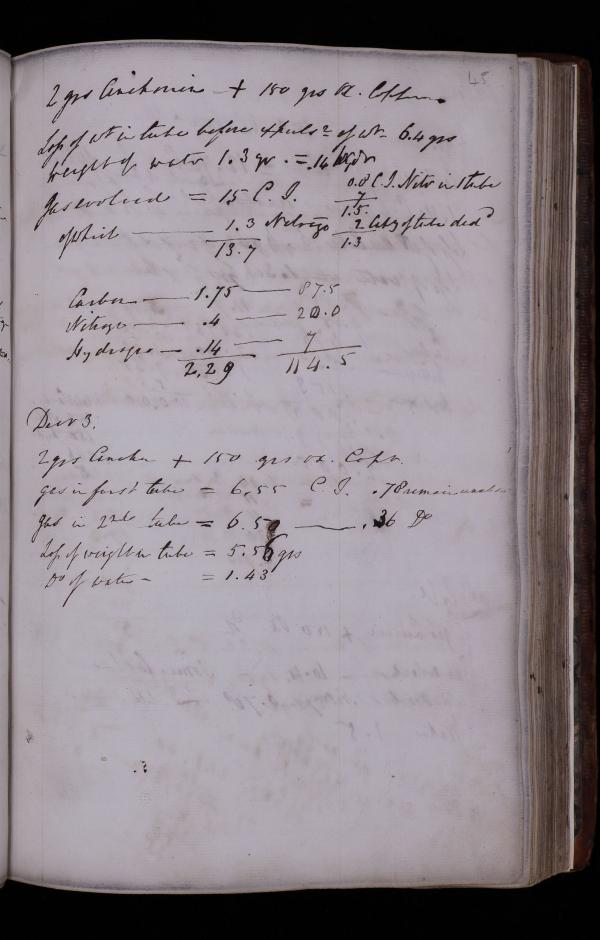 45
2 grs Cinchonin + 150 grs Ox. Copper
Loss of wt in tube before expulsn of wr 6.4 grs
Weight of water 1.3 gr. = .14 hydr
Gas evolved = 15 C. I. 0.8 C.I. Nitr in 1 tube
7
1.5
of which 1.3 Nitrogn 2 of tube dedd
13.7 1.3
Carbon — 1.75 — 87.5
Nitrogn — .4 — 20.0
Hydrogn — .14 — 7
2.29 114.5
Decr 3.
2 grs Cinchn + 150 grs ox. Copr.
gas in first tube = 6.55 C. I. .78 remain
gas in 2nd tube = 6.50 — .36 Do
Loss of weight in tube = 5.56 grs
Do of water - = 1.43